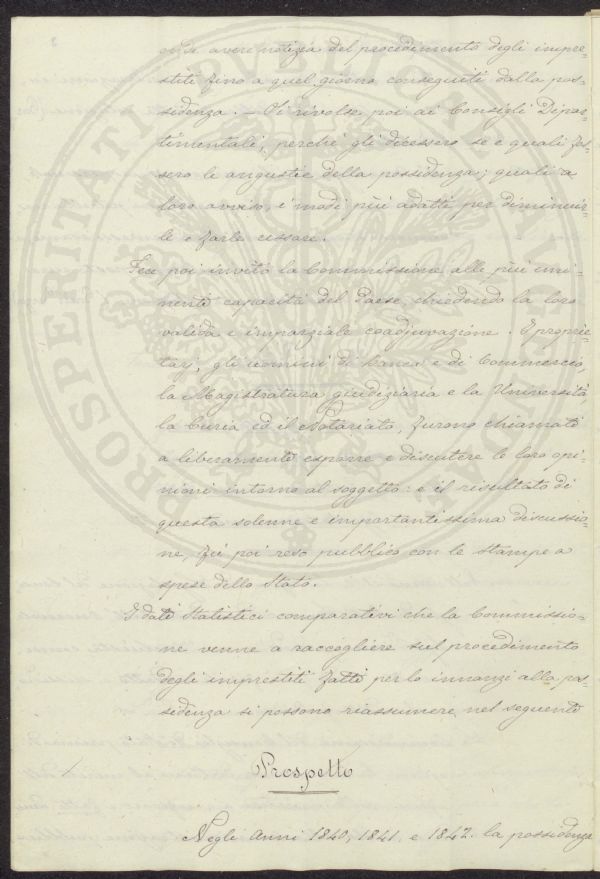 onde avere notizia del procedimento degli impre-
stiti fino a quel giorno conseguiti dalla pos-
sidenza. — Si rivolse poi ai Consigli Dipar-
timentali, perchè gli dicessero se e quali fos-
sero le angustie della possidenza; quali a
loro avviso, i modi più adatti per diminuir-
le e farle cessare.
Fece poi invito la Commissione alle più emi-
nenti capacità del Paese, chiedendo la loro
valida e imparziale coadjuvazione. I proprie-
tarj, gli uomini di banca e di Commercio,
la Magistratura giudiziaria e la Università
la Curia ed il Notariato, furono chiamati
a liberamente esporre e discutere le loro opi-
nioni intorno al soggetto: e il risultato di
questa solenne e importantissima discussio-
ne, fù poi reso pubblico con le stampe a
spese dello Stato.
I dati Statistici comparativi che la Commissio-
ne venne a raccogliere sul procedimento
degli imprestiti fatti per lo innanzi alla pos-
sidenza si possono riassumere nel seguente
Prospetto
Negli Anni 1840, 1841. e 1842. la possidenza
PROSPERITATI PUBLICAE AUGENDAE